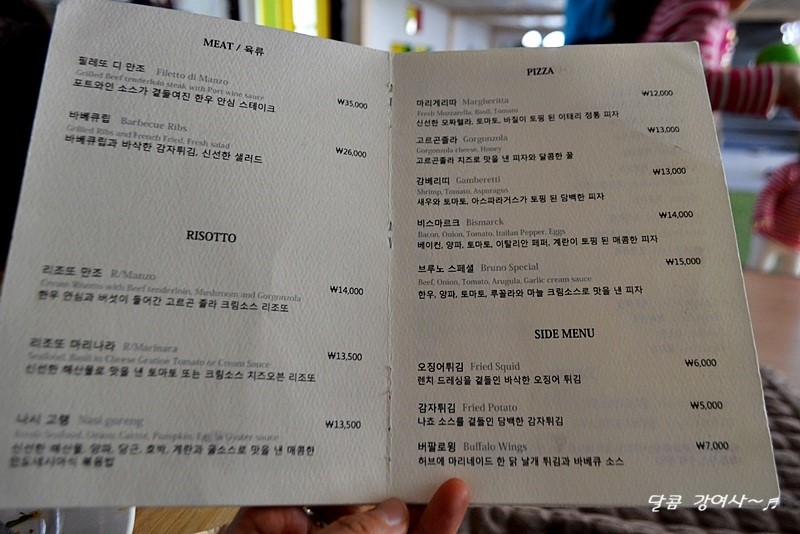 MEAT / 육류
필레또 디 만조 Filetto di Manzo
Grilled Beef tenderloin steak with Port wine sauce
포트와인 소스가 곁들여진 한우 안심 스테이크
₩35,000
바베큐립 Barbecue Ribs
Grilled Ribs and French Fried, Fresh salad
바베큐립과 바삭한 감자튀김, 신선한 샐러드
₩26,000
RISOTTO
리조또 만조 R/Manzo
Cream Risotto with Beef tenderloin, Mushroom and Gorgonzola
한우 안심과 버섯이 들어간 고르곤 졸라 크림소스 리조또
₩14,000
리조또 마리나라 R/Marinara
Seafood, Basil in Cheese Gration Tomato or Cream Sauce
신선한 해산물로 맛을 낸 토마토 또는 크림소스 치즈오븐 리조또
₩13,500
나시 고랭 Nasi goreng
Fresh Seafood, Onion, Carrot, Pumpkin, Egg in Oyster sauce
신선한 해산물, 양파, 당근, 호박, 계란과 굴소스로 맛을 낸 매콤한
인도네시아식 볶음밥
₩13,500
PIZZA
마리게리따 Margheritta
Fresh Mozzarella, Basil, Tomato
신선한 모짜렐라, 토마토, 바질이 토핑 된 이태리 정통 피자
₩12,000
고르곤졸라 Gorgonzola
Gorgonzola cheese, Honey
고르곤졸라 치즈로 맛을 낸 피자와 달콤한 꿀
₩13,000
감베리띠 Gamberetti
Shrimp, Tomato, Asparagus
새우와 토마토, 아스파라거스가 토핑 된 담백한 피자
₩13,000
비스마르크 Bismarck
Bacon, Onion, Tomato, Itailan Pepper, Eggs
베이컨, 양파, 토마토, 이탈리안 페퍼, 계란이 토핑 된 매콤한 피자
₩14,000
브루노 스페셜 Bruno Special
Beef, Onion, Tomato, Arugula, Garlic cream sauce
한우, 양파, 토마토, 루꼴라와 마늘 크림소스로 맛을 낸 피자
₩15,000
SIDE MENU
오징어튀김 Fried Squid
렌치 드레싱을 곁들인 바삭한 오징어 튀김
₩6,000
감자튀김 Fried Potato
나쵸 소스를 곁들인 담백한 감자튀김
₩5,000
버팔로윙 Buffalo Wings
허브에 마리네이드 한 닭 날개 튀김과 바베큐 소스
₩7,000
달콤 강여사~♬